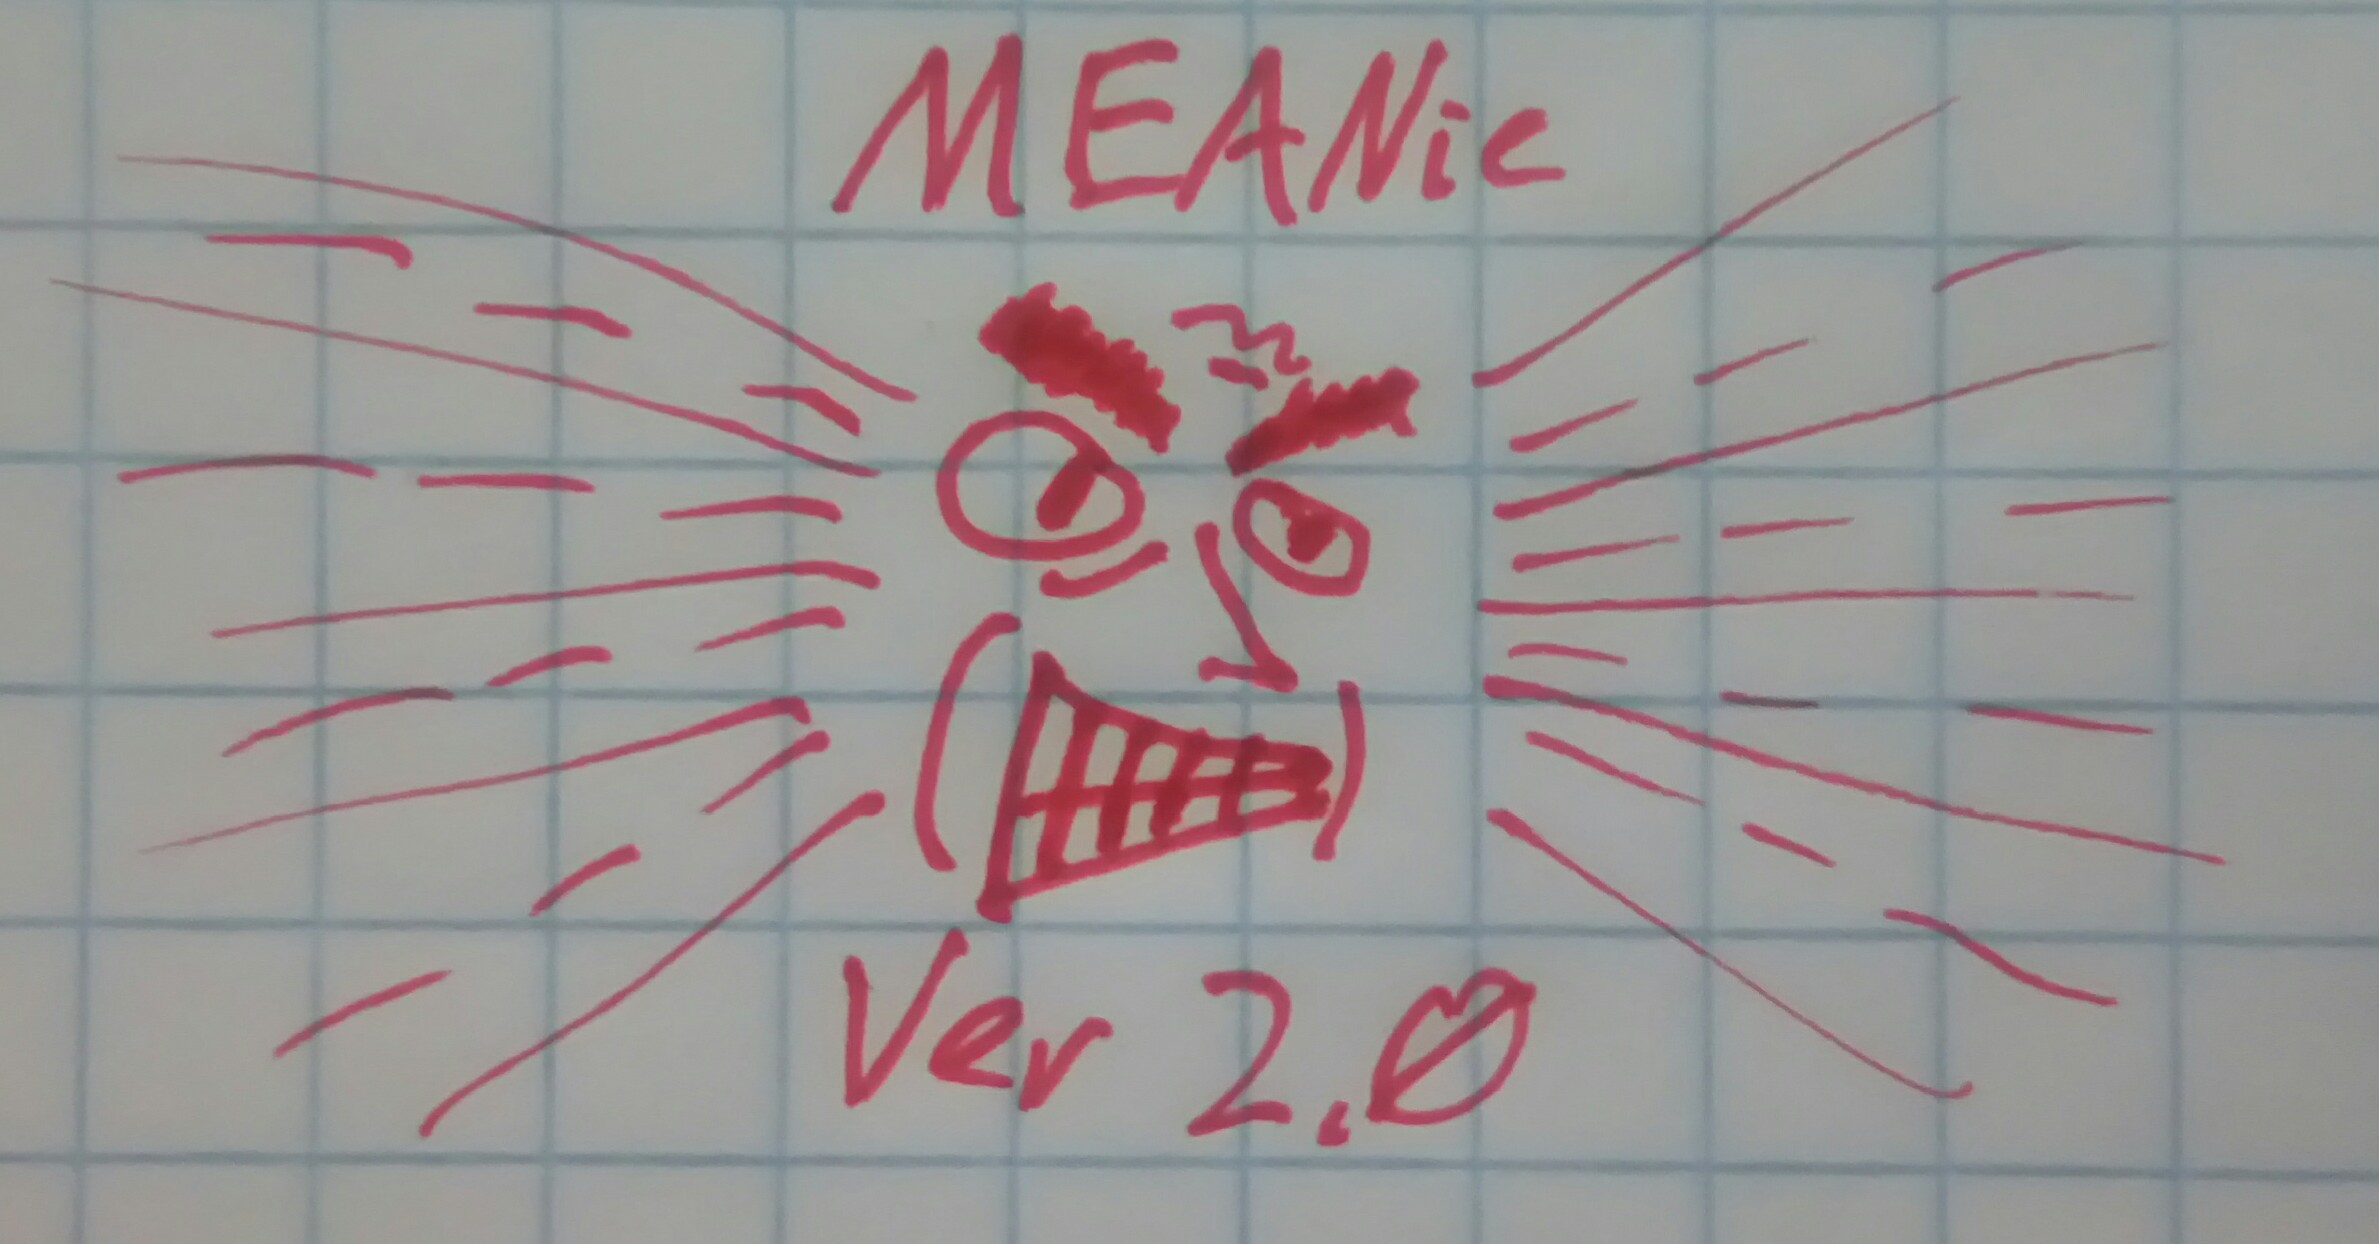 MEANie
Ver 2.0